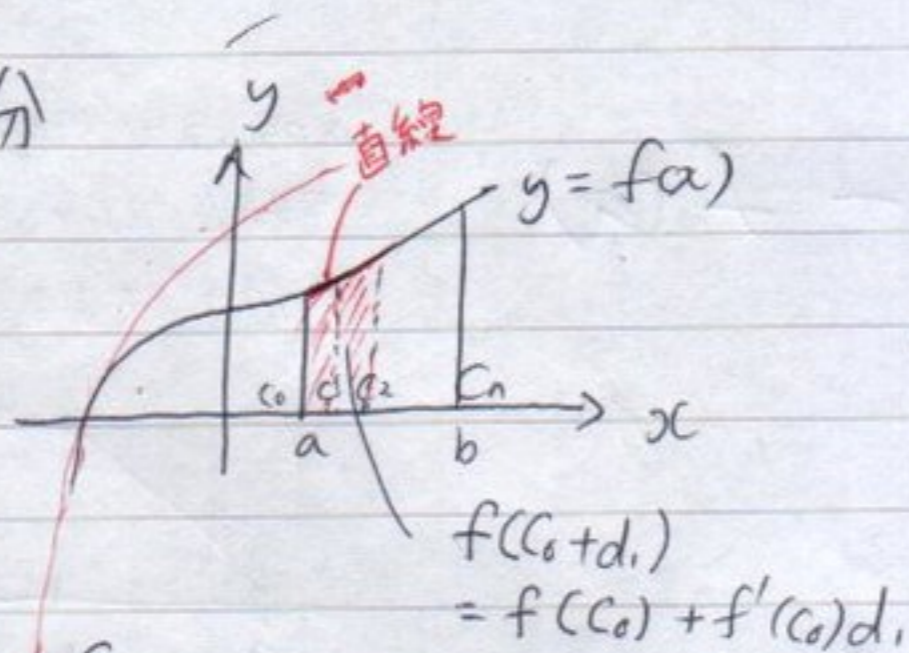 分
y
直線
y = f(x)
C₀ C₁ C₂ Cn
a b x
f(C₀+d₁)
= f(C₀) + f'(C₀)d₁